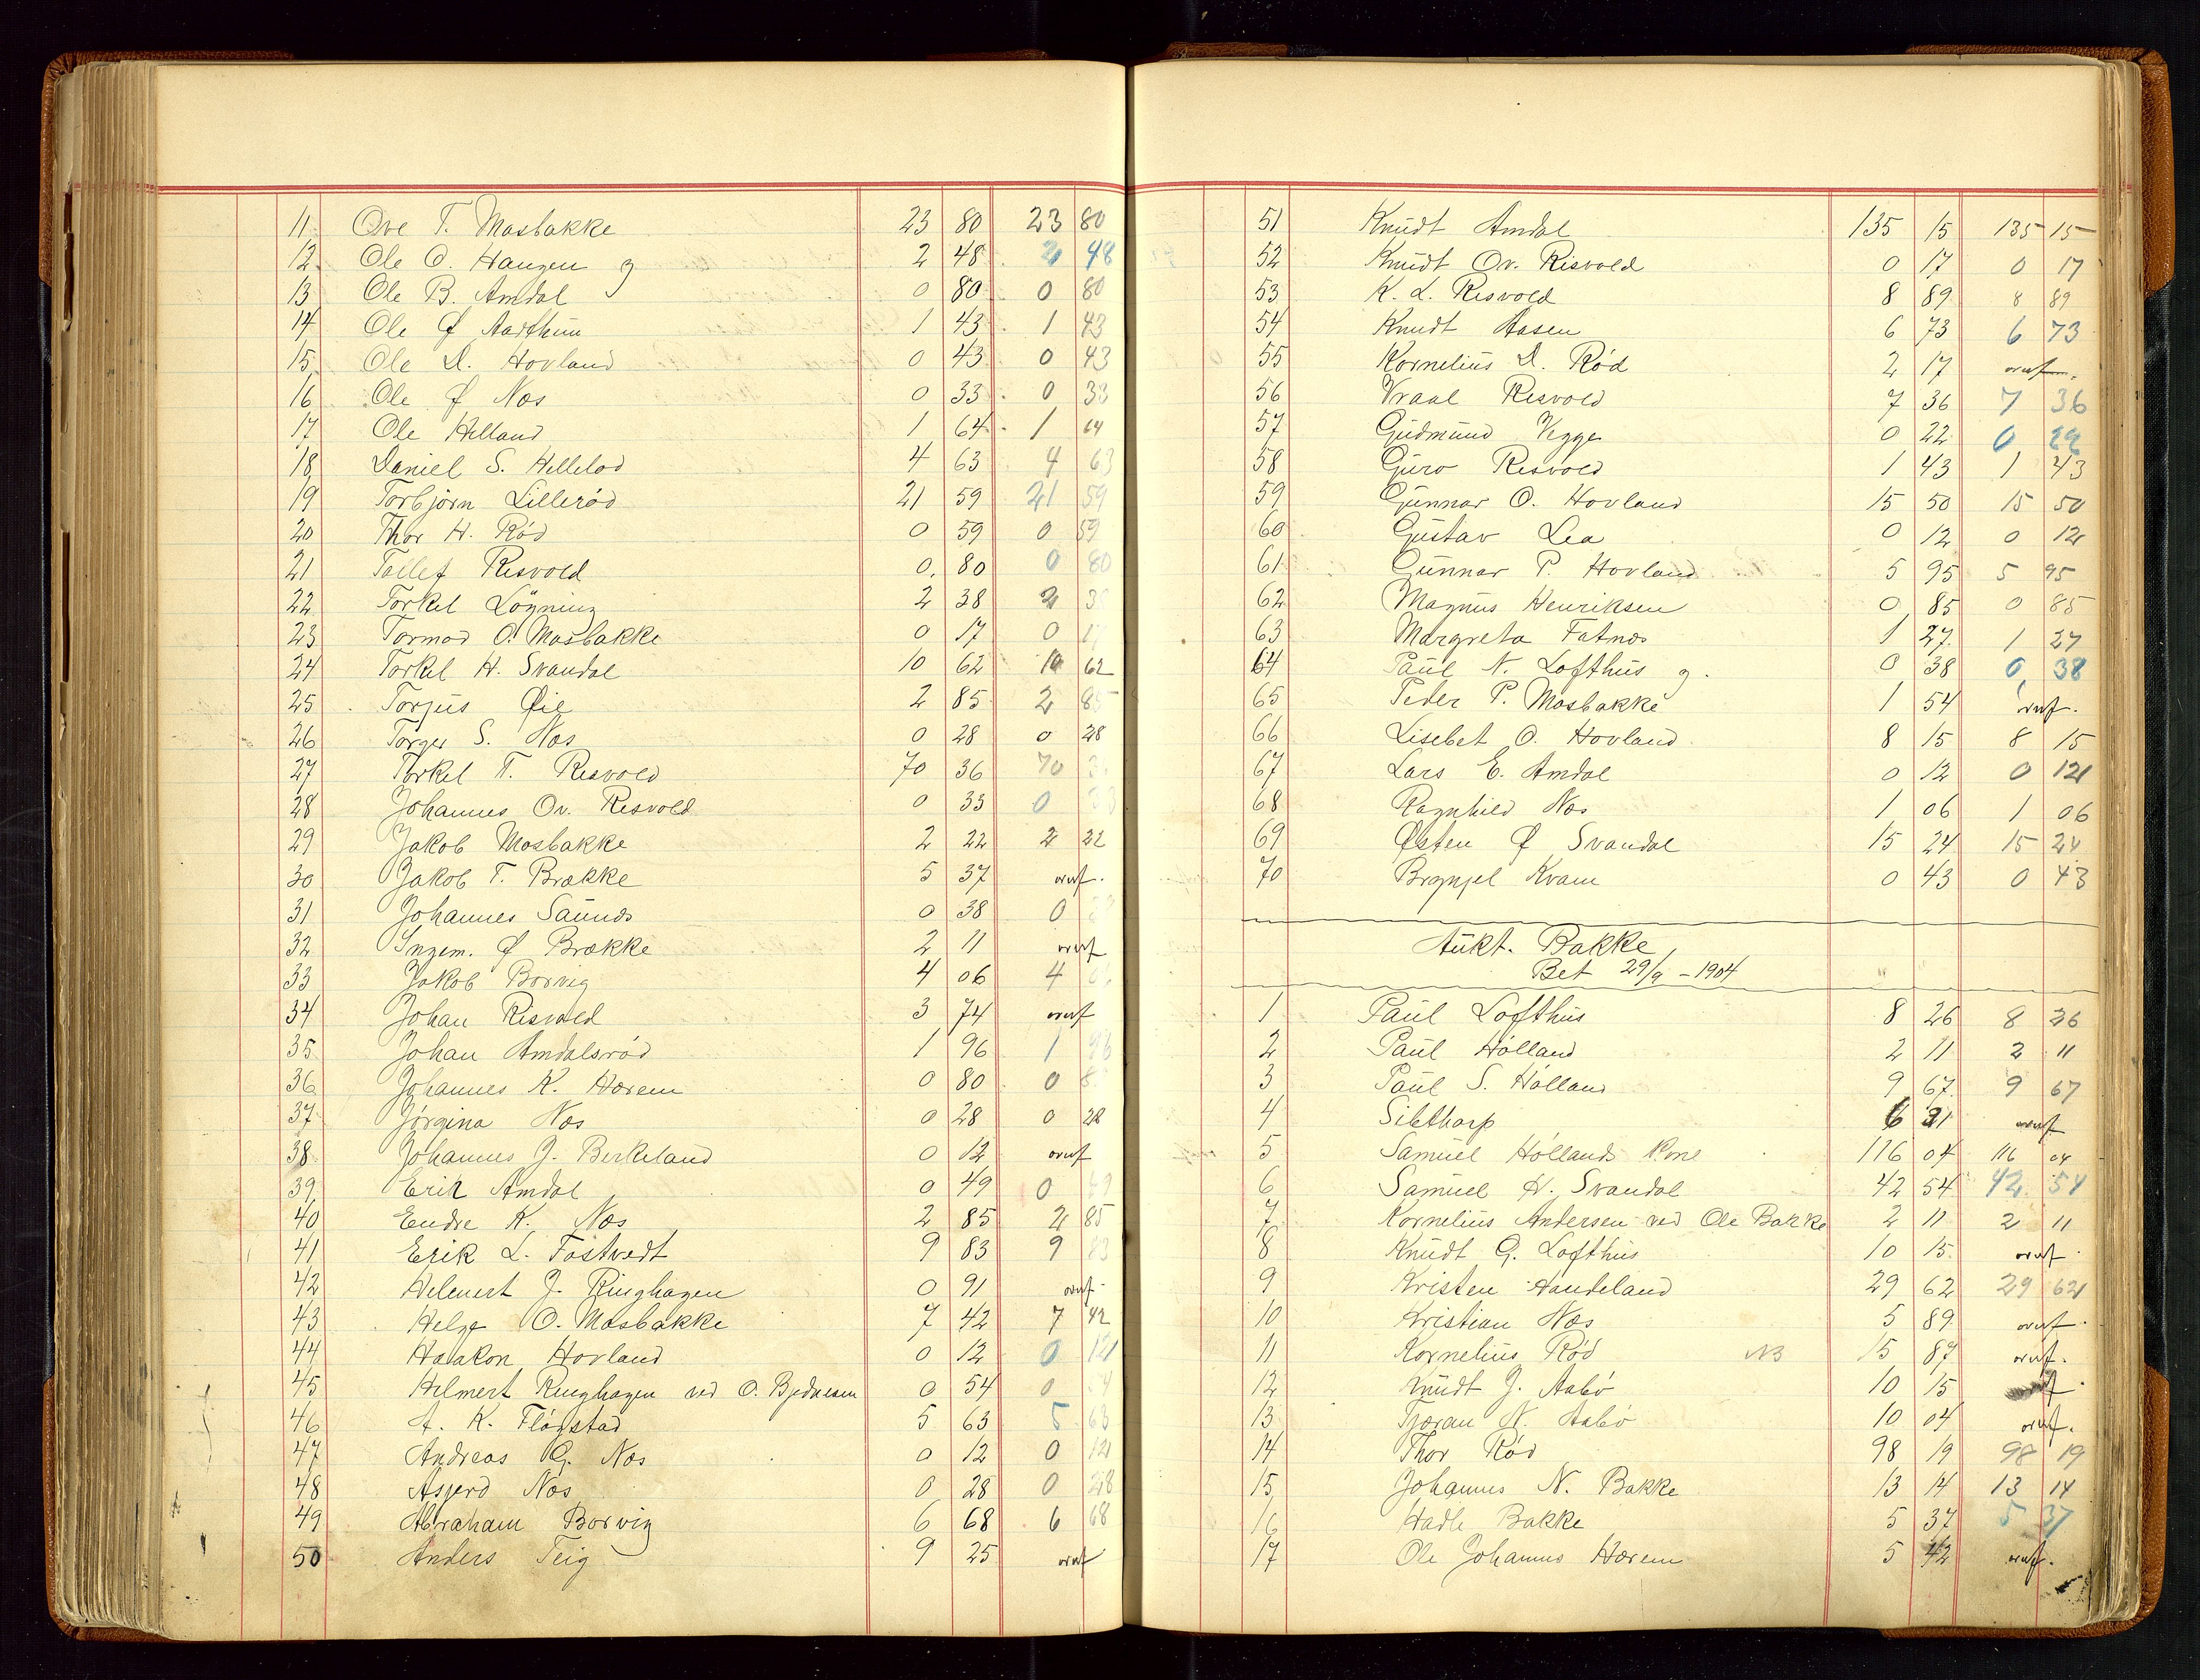 11 Ove T. Mosbakke 23 80 23 80
12 Ole O. Haugen g 2 48 2 48
13 Ole B. Amdal 0 80 0 80
14 Ole Ø Aarthun 1 43 1 43
15 Ole D. Hovland 0 43 0 43
16 Ole Ø Næs 0 33 0 33
17 Ole Helland 1 64 1 64
18 Daniel S. Hellelod 4 63 4 63
19 Torbjørn Lillerød 21 59 21 59
20 Thor H. Rød 0 59 0 59
21 Tollef Risvold 0 80 0 80
22 Torkel Løgning 2 38 2 3
23 Tormod O. Mosbakke 0 17 0 17
24 Torkel H. Svandal 10 62 10 62
25 Torjus Øie 2 85 2 85
26 Torger S. Næs 0 28 0 28
27 Torkel T. Risvold 70 36 70 3
28 Johannes Ov. Risvold 0 33 0 33
29 Jakob Mosbakke 2 22 2 22
30 Jakob T. Brække 5 37 overf.
31 Johannes Saunds 0 38 0
32 Ingem. Ø Brække 2 11 overf
33 Jakob Borvig 4 06 4
34 Johan Risvold 3 74 overf
35 Johan Amdalsrød 1 96 1 96
36 Johannes K. Hærem 0 80 0 8
37 Jørgina Næs 0 28 0 28
38 Johannes J. Berkeland 0 12 overf
39 Erik Amdal 0 49 0 49
40 Endre K. Næs 2 85 2 85
41 Erik L. Fostvedt 9 83 9 83
42 Helmert J. Ringhagen 0 91 overf.
43 Helge O. Mosbakke 7 42 7 42
44 Haakon Hovland 0 12 0 12
45 Helmert Ringhagen ved O. 0 54 0 54
46 A. K. Fløgstad 5 63 5 63
47 Andreas G. Næs 0 12 0 12
48 Asjerd Næs 0 28 0 28
49 Abraham Borvig 6 68 6 68
50 Anders Teig 9 25 overf
51 Knudt Amdal 135 15 135 15
52 Knudt Ov. Risvold 0 17 0 17
53 K. L. Risvold 8 89 8 89
54 Knudt Aasen 6 73 6 73
55 Kornelius D. Rød 2 17 overf.
56 Vraal Risvold 7 36 7 36
57 Gudmund Vegge 0 22 0 22
58 Guro Risvold 1 43 1 43
59 Gunnar O. Hovland 15 50 15 50
60 Gustav Lea 0 12 0 12
61 Gunnar P. Hovland 5 95 5 95
62 Magnus Henriksen 0 85 0 85
63 Margreta Fatnæs 1 27 1 27
64 Paul N. Lofthus g. 0 38 0 38
65 Peder P. Mosbakke 1 54 overf.
66 Lisebet O. Hovland 8 15 8 15
67 Lars E. Amdal 0 12 0 12
68 Ragnhild Næs 1 06 1 06
69 Østen Ø Svandal 15 24 15 24
70 Brynjel Kvam 0 43 0 43
Aukt. Bakke
Bet 29/9 - 1904
1 Paul Lofthus 8 26 8 26
2 Paul Hølland 2 11 2 11
3 Paul S. Hølland 9 67 9 67
4 Sibtharp 6 21 overf
5 Samuel Høllands Kone 116 04 116 04
6 Samuel H. Svandal 42 54 42 54
7 Kornelius Andersen ved Ole Bakke 2 11 2 11
8 Knudt G. Lofthus 10 15 overf.
9 Kristen Handeland 29 62 29 62
10 Kristian Næs 5 89 overf.
11 Kornelius Rød NB 15 87 overf.
12 Knudt J. Aabø 10 15
13 Tjæran N. Aabø 10 04 overf.
14 Thor Rød 98 19 98 19
15 Johannes N. Bakke 13 14 13 14
16 Hadle Bakke 5 37 5 37
17 Ole Johannes Hærem 5 42 overf.